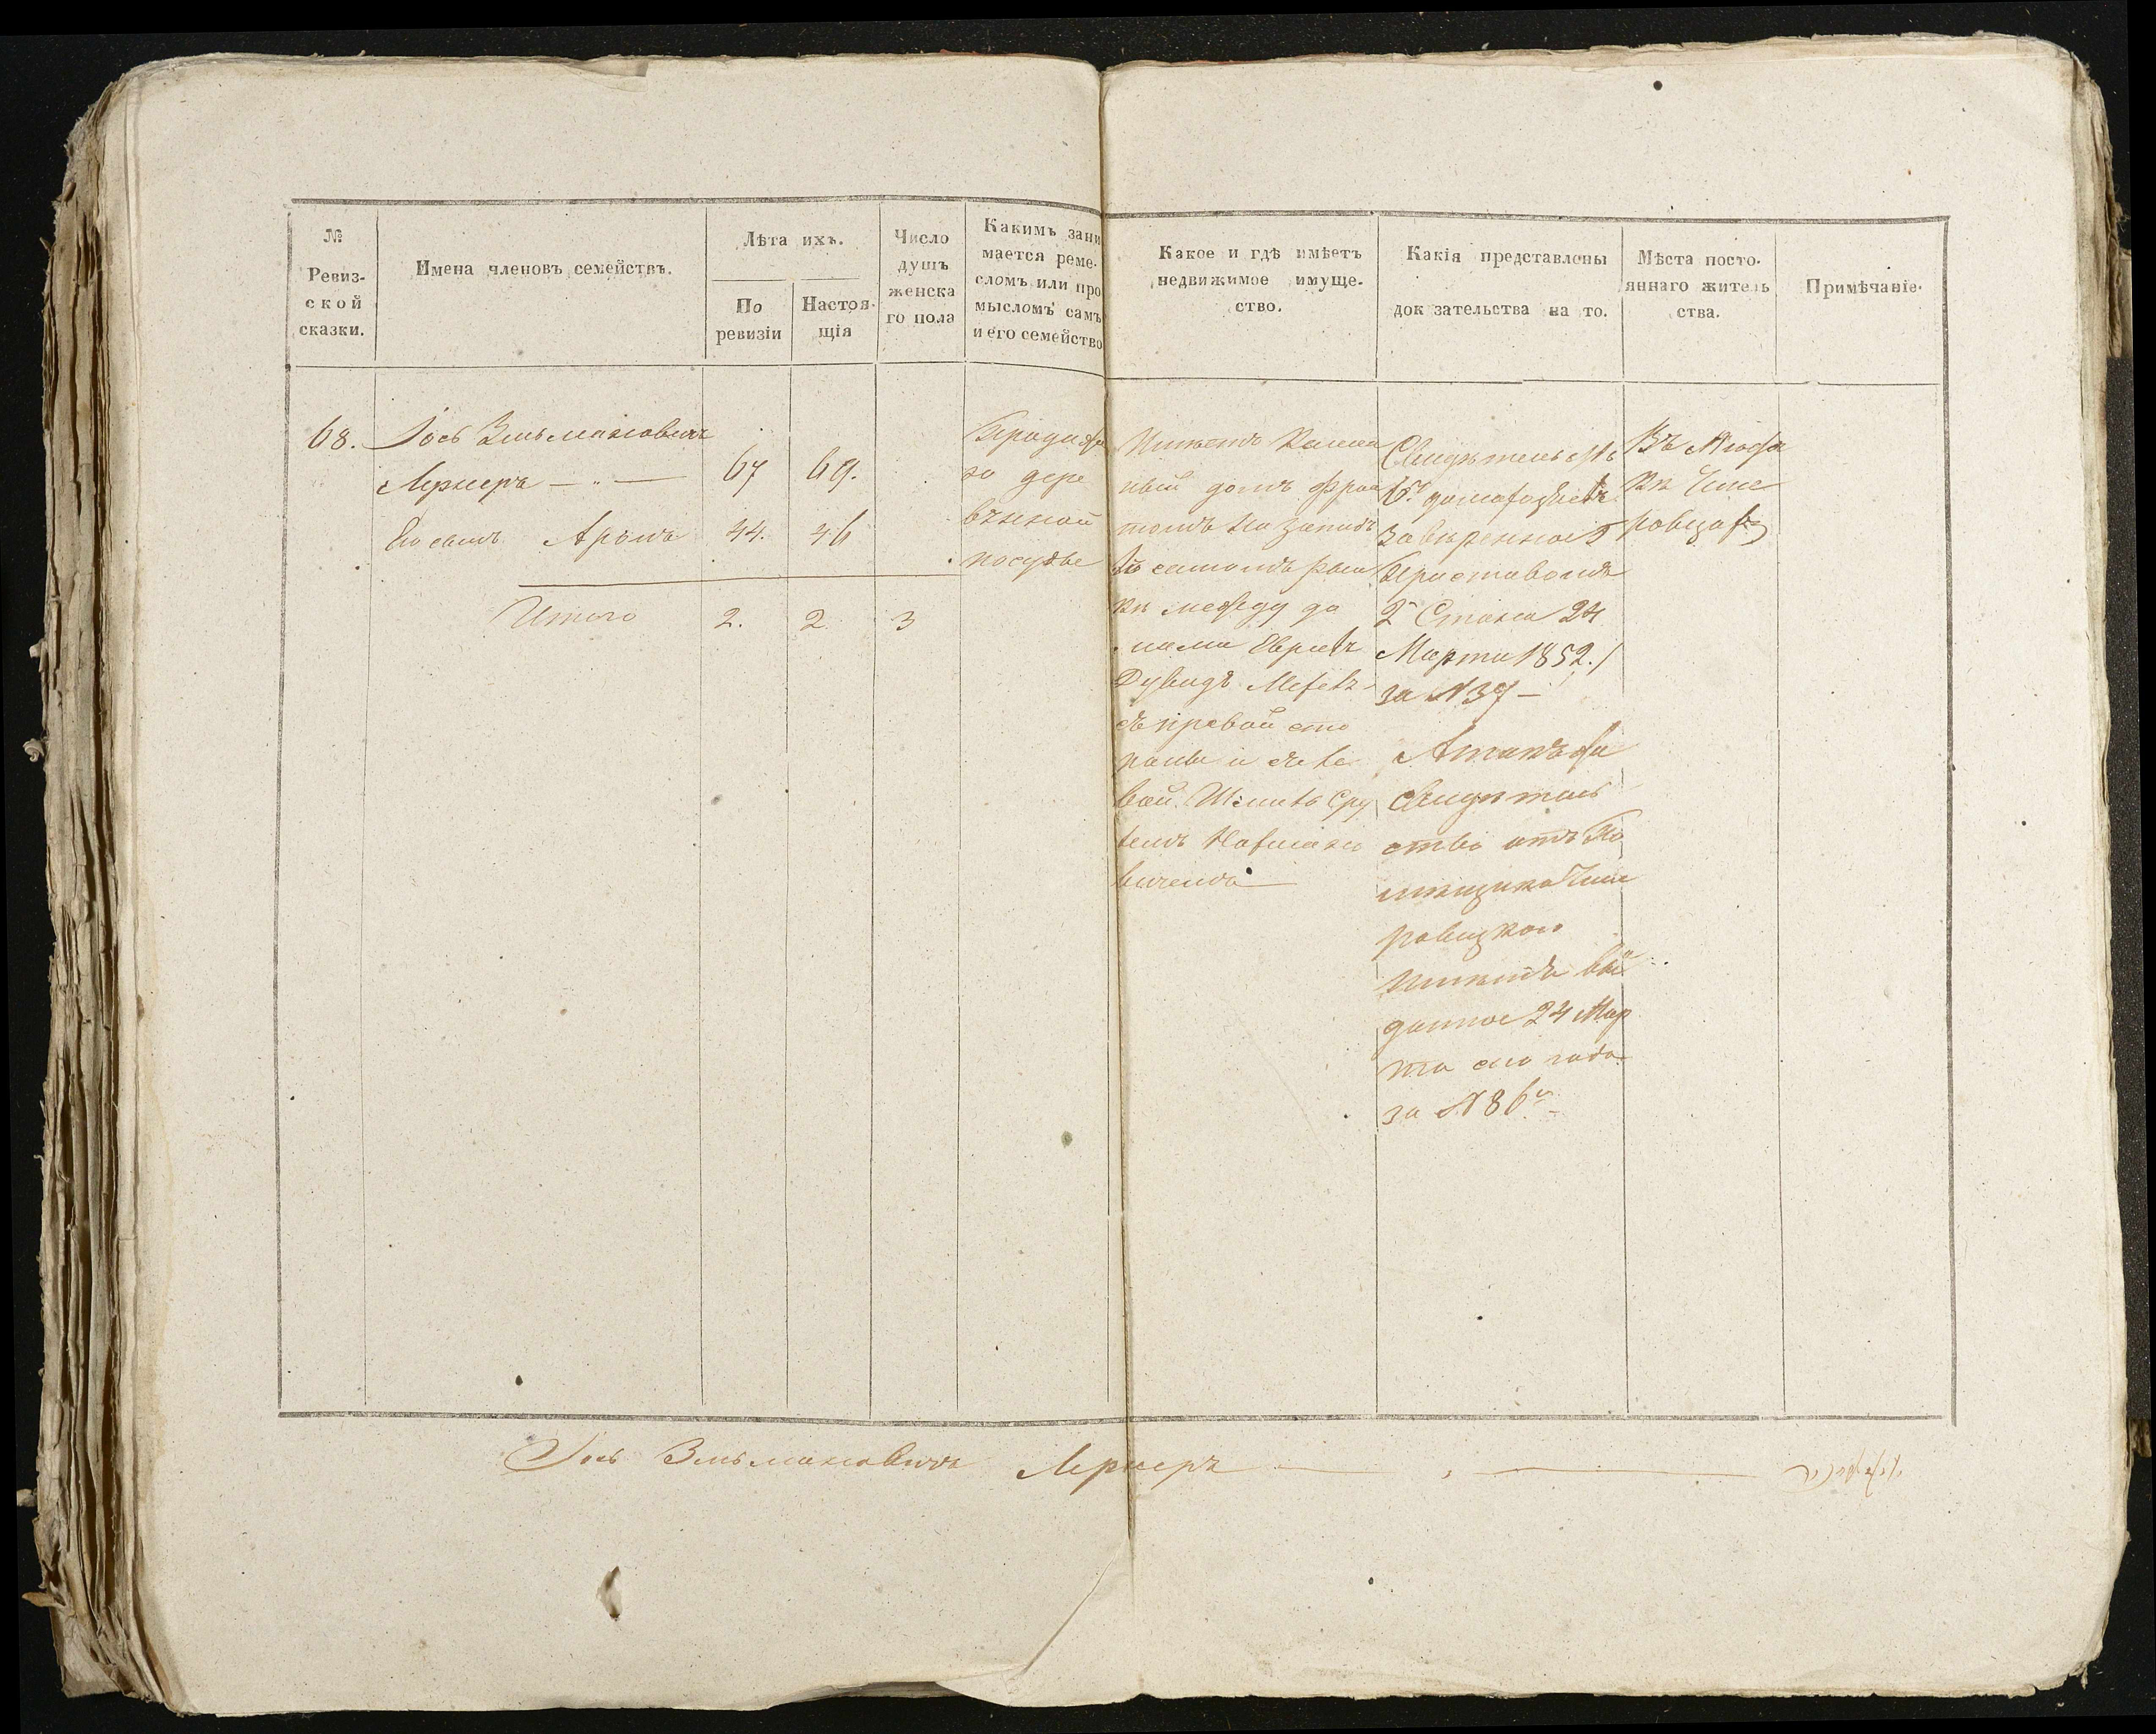 №
Ревиз-
ской
сказки.
Имена членовъ семействъ.
Лѣта ихъ.
По
ревизіи
Настоя-
щія
Число
душъ
женска
го пола
Какимъ зани
мается реме-
сломъ или про
мысломъ самъ
и его семейство
Какое и гдѣ имѣетъ
недвижимое имуще-
ство.
Какія представлены
док зательства на то.
Мѣста посто-
яннаго житель
ства.
Примѣчаніе.
68. Іось Зильмановичъ
Лернеръ 67 69.
Его сынъ Аронъ 44. 46
Итого 2. 2 3
Продажа
ю дере
вянной
посудые
Имѣетъ камен
ный домъ фрон
томъ на западъ
въ самомъ рын
кѣ между до
мами Евреевъ
Дувидъ
съ правой сто
роны и съ ле
вой Сру
лемъ
вичемъ
Свидѣтельство
6 домохозяевъ
завѣренное
Приставомъ
2 Стана 24
Марта 1852.
за № 37
А также
свидѣтель
ство отъ по
мѣщика
имѣнія вы
данное 24 Мар
та сего года
за № 86
Въ
кѣ
Іось Зильмановичъ Лернеръ